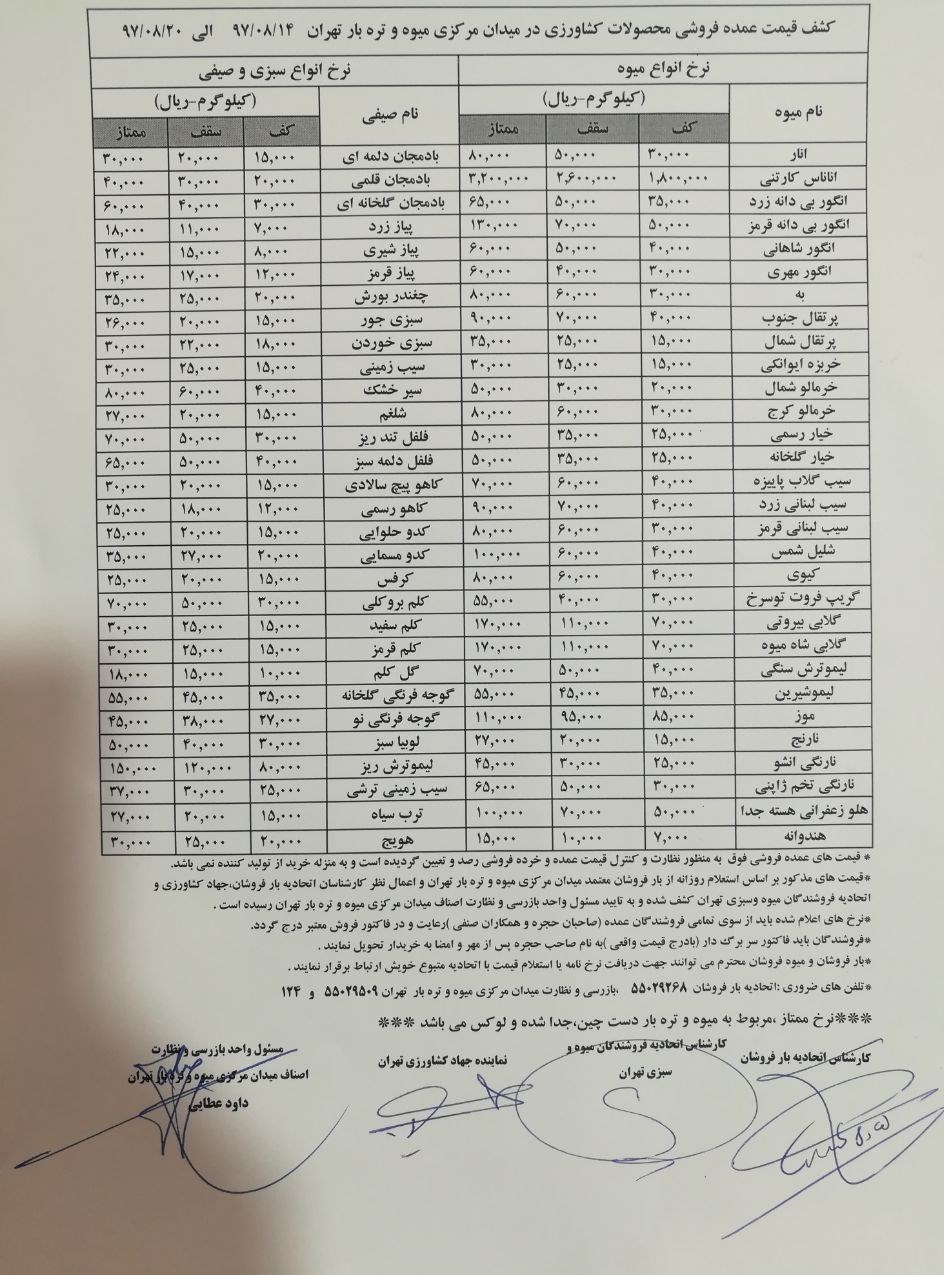 کشف قیمت عمده فروشی محصولات کشاورزی در میدان مرکزی میوه و تره بار تهران ۹۷/۰۸/۱۴ الی ۹۷/۰۸/۲۰
نرخ انواع میوه نرخ انواع سبزی و صیفی
نام میوه (کیلوگرم-ریال) نام صیفی (کیلوگرم-ریال)
کف سقف ممتاز کف سقف ممتاز
انار ۳۰,۰۰۰ ۵۰,۰۰۰ ۸۰,۰۰۰ بادمجان دلمه ای ۱۵,۰۰۰ ۲۰,۰۰۰ ۳۰,۰۰۰
اناناس کارتنی ۱,۸۰۰,۰۰۰ ۲,۶۰۰,۰۰۰ ۳,۲۰۰,۰۰۰ بادمجان قلمی ۲۰,۰۰۰ ۳۰,۰۰۰ ۴۰,۰۰۰
انگور بی دانه زرد ۳۵,۰۰۰ ۵۰,۰۰۰ ۶۵,۰۰۰ بادمجان گلخانه ای ۳۰,۰۰۰ ۴۰,۰۰۰ ۶۰,۰۰۰
انگور بی دانه قرمز ۵۰,۰۰۰ ۷۰,۰۰۰ ۱۳۰,۰۰۰ پیاز زرد ۷,۰۰۰ ۱۱,۰۰۰ ۱۸,۰۰۰
انگور شاهانی ۴۰,۰۰۰ ۵۰,۰۰۰ ۶۰,۰۰۰ پیاز شیری ۸,۰۰۰ ۱۵,۰۰۰ ۲۲,۰۰۰
انگور مهری ۳۰,۰۰۰ ۴۰,۰۰۰ ۶۰,۰۰۰ پیاز قرمز ۱۲,۰۰۰ ۱۷,۰۰۰ ۲۴,۰۰۰
به ۳۰,۰۰۰ ۶۰,۰۰۰ ۸۰,۰۰۰ چغندر بورش ۲۰,۰۰۰ ۲۵,۰۰۰ ۳۵,۰۰۰
پرتقال جنوب ۴۰,۰۰۰ ۷۰,۰۰۰ ۹۰,۰۰۰ سبزی جور ۱۵,۰۰۰ ۲۰,۰۰۰ ۲۶,۰۰۰
پرتقال شمال ۱۵,۰۰۰ ۲۵,۰۰۰ ۳۵,۰۰۰ سبزی خوردن ۱۸,۰۰۰ ۲۲,۰۰۰ ۳۰,۰۰۰
خربزه ایوانکی ۱۵,۰۰۰ ۲۵,۰۰۰ ۳۰,۰۰۰ سیب زمینی ۱۵,۰۰۰ ۲۵,۰۰۰ ۳۰,۰۰۰
خرمالو شمال ۲۰,۰۰۰ ۳۰,۰۰۰ ۵۰,۰۰۰ سیر خشک ۴۰,۰۰۰ ۶۰,۰۰۰ ۸۰,۰۰۰
خرمالو کرج ۳۰,۰۰۰ ۶۰,۰۰۰ ۸۰,۰۰۰ شلغم ۱۵,۰۰۰ ۲۰,۰۰۰ ۲۷,۰۰۰
خیار رسمی ۲۵,۰۰۰ ۳۵,۰۰۰ ۵۰,۰۰۰ فلفل تند ریز ۳۰,۰۰۰ ۵۰,۰۰۰ ۷۰,۰۰۰
خیار گلخانه ۲۵,۰۰۰ ۳۵,۰۰۰ ۵۰,۰۰۰ فلفل دلمه سبز ۴۰,۰۰۰ ۵۰,۰۰۰ ۶۵,۰۰۰
سیب گلاب پاییزه ۴۰,۰۰۰ ۶۰,۰۰۰ ۷۰,۰۰۰ کاهو پیچ سالادی ۱۵,۰۰۰ ۲۰,۰۰۰ ۳۰,۰۰۰
سیب لبنانی زرد ۴۰,۰۰۰ ۷۰,۰۰۰ ۹۰,۰۰۰ کاهو رسمی ۱۲,۰۰۰ ۱۸,۰۰۰ ۲۵,۰۰۰
سیب لبنانی قرمز ۳۰,۰۰۰ ۶۰,۰۰۰ ۸۰,۰۰۰ کدو حلوایی ۱۵,۰۰۰ ۲۰,۰۰۰ ۲۵,۰۰۰
شلیل شمس ۴۰,۰۰۰ ۶۰,۰۰۰ ۱۰۰,۰۰۰ کدو مسمایی ۲۰,۰۰۰ ۲۷,۰۰۰ ۳۵,۰۰۰
کیوی ۴۰,۰۰۰ ۶۰,۰۰۰ ۸۰,۰۰۰ کرفس ۱۵,۰۰۰ ۲۰,۰۰۰ ۲۵,۰۰۰
گریپ فروت توسرخ ۳۰,۰۰۰ ۴۰,۰۰۰ ۵۵,۰۰۰ کلم بروکلی ۳۰,۰۰۰ ۵۰,۰۰۰ ۷۰,۰۰۰
گلابی بیروتی ۷۰,۰۰۰ ۱۱۰,۰۰۰ ۱۷۰,۰۰۰ کلم سفید ۱۵,۰۰۰ ۲۵,۰۰۰ ۳۰,۰۰۰
گلابی شاه میوه ۷۰,۰۰۰ ۱۱۰,۰۰۰ ۱۷۰,۰۰۰ کلم قرمز ۱۵,۰۰۰ ۲۵,۰۰۰ ۳۰,۰۰۰
لیموترش سنگی ۴۰,۰۰۰ ۵۰,۰۰۰ ۷۰,۰۰۰ گل کلم ۱۰,۰۰۰ ۱۵,۰۰۰ ۱۸,۰۰۰
لیموشیرین ۳۵,۰۰۰ ۴۵,۰۰۰ ۵۵,۰۰۰ گوجه فرنگی گلخانه ۳۵,۰۰۰ ۴۵,۰۰۰ ۵۵,۰۰۰
موز ۸۵,۰۰۰ ۹۵,۰۰۰ ۱۱۰,۰۰۰ گوجه فرنگی نو ۲۷,۰۰۰ ۳۸,۰۰۰ ۴۵,۰۰۰
نارنج ۱۵,۰۰۰ ۲۰,۰۰۰ ۲۷,۰۰۰ لوبیا سبز ۳۰,۰۰۰ ۴۰,۰۰۰ ۵۰,۰۰۰
نارنگی انشو ۲۵,۰۰۰ ۳۰,۰۰۰ ۴۵,۰۰۰ لیموترش ریز ۸۰,۰۰۰ ۱۲۰,۰۰۰ ۱۵۰,۰۰۰
نارنگی تخم ژاپنی ۳۰,۰۰۰ ۵۰,۰۰۰ ۶۵,۰۰۰ سیب زمینی ترشی ۲۵,۰۰۰ ۳۰,۰۰۰ ۳۷,۰۰۰
هلو زعفرانی هسته جدا ۵۰,۰۰۰ ۷۰,۰۰۰ ۱۰۰,۰۰۰ ترب سیاه ۱۵,۰۰۰ ۲۰,۰۰۰ ۲۷,۰۰۰
هندوانه ۷,۰۰۰ ۱۰,۰۰۰ ۱۵,۰۰۰ هویج ۲۰,۰۰۰ ۲۵,۰۰۰ ۳۰,۰۰۰
* قیمت های عمده فروشی فوق به منظور نظارت و کنترل قیمت عمده و خرده فروشی رصد و تعیین گردیده است و به منزله خرید از تولید کننده نمی باشد.
*قیمت های مذکور بر اساس استعلام روزانه از بار فروشان معتمد میدان مرکزی میوه و تره بار تهران و اعمال نظر کارشناسان اتحادیه بار فروشان،جهاد کشاورزی و
اتحادیه فروشندگان میوه وسبزی تهران کشف شده و به تایید مسئول واحد بازرسی و نظارت اصناف میدان مرکزی میوه و تره بار تهران رسیده است .
*نرخ های اعلام شده باید از سوی تمامی فروشندگان عمده (صاحبان حجره و همکاران صنفی )رعایت و در فاکتور فروش معتبر درج گردد.
*فروشندگان باید فاکتور سر برگ دار (بادرج قیمت واقعی )به نام صاحب حجره پس از مهر و امضا به خریدار تحویل نمایند .
*بار فروشان و میوه فروشان محترم می توانند جهت دریافت نرخ نامه یا استعلام قیمت با اتحادیه متبوع خویش ارتباط برقرار نمایند .
*تلفن های ضروری :اتحادیه بار فروشان ۵۵۰۲۹۲۶۸ ،بازرسی و نظارت میدان مرکزی میوه و تره بار تهران ۵۵۰۲۹۵۰۹ و ۱۲۴
***نرخ ممتاز ،مربوط به میوه و تره بار دست چین،جدا شده و لوکس می باشد ***
کارشناس اتحادیه بار فروشان
کارشناس اتحادیه فروشندگان میوه و
سبزی تهران
نماینده جهاد کشاورزی تهران
مسئول واحد بازرسی و نظارت
اصناف میدان مرکزی میوه و تره بار تهران
داود عطایی